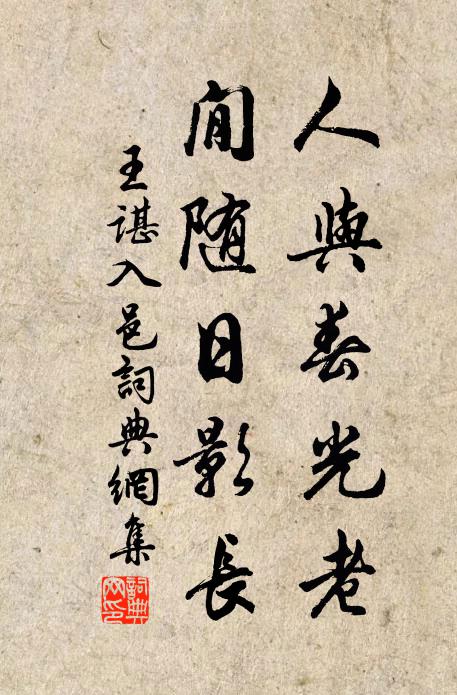 人與春光老
閒隨日影長
王諶入邑詞典網集
詞典網印